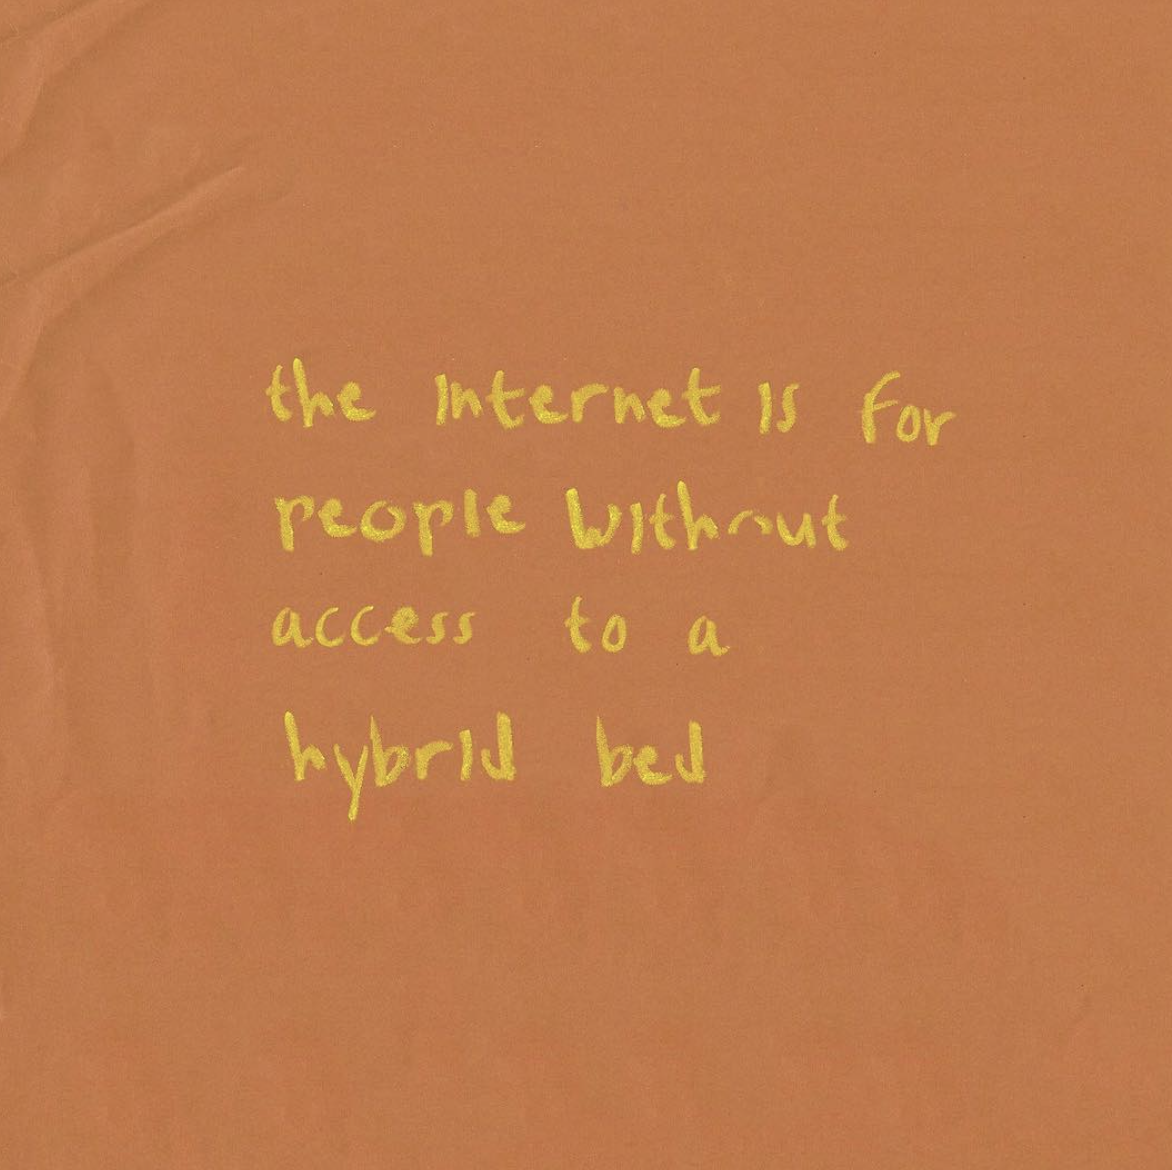 the internet is for
people without
access to a
hybrid bed